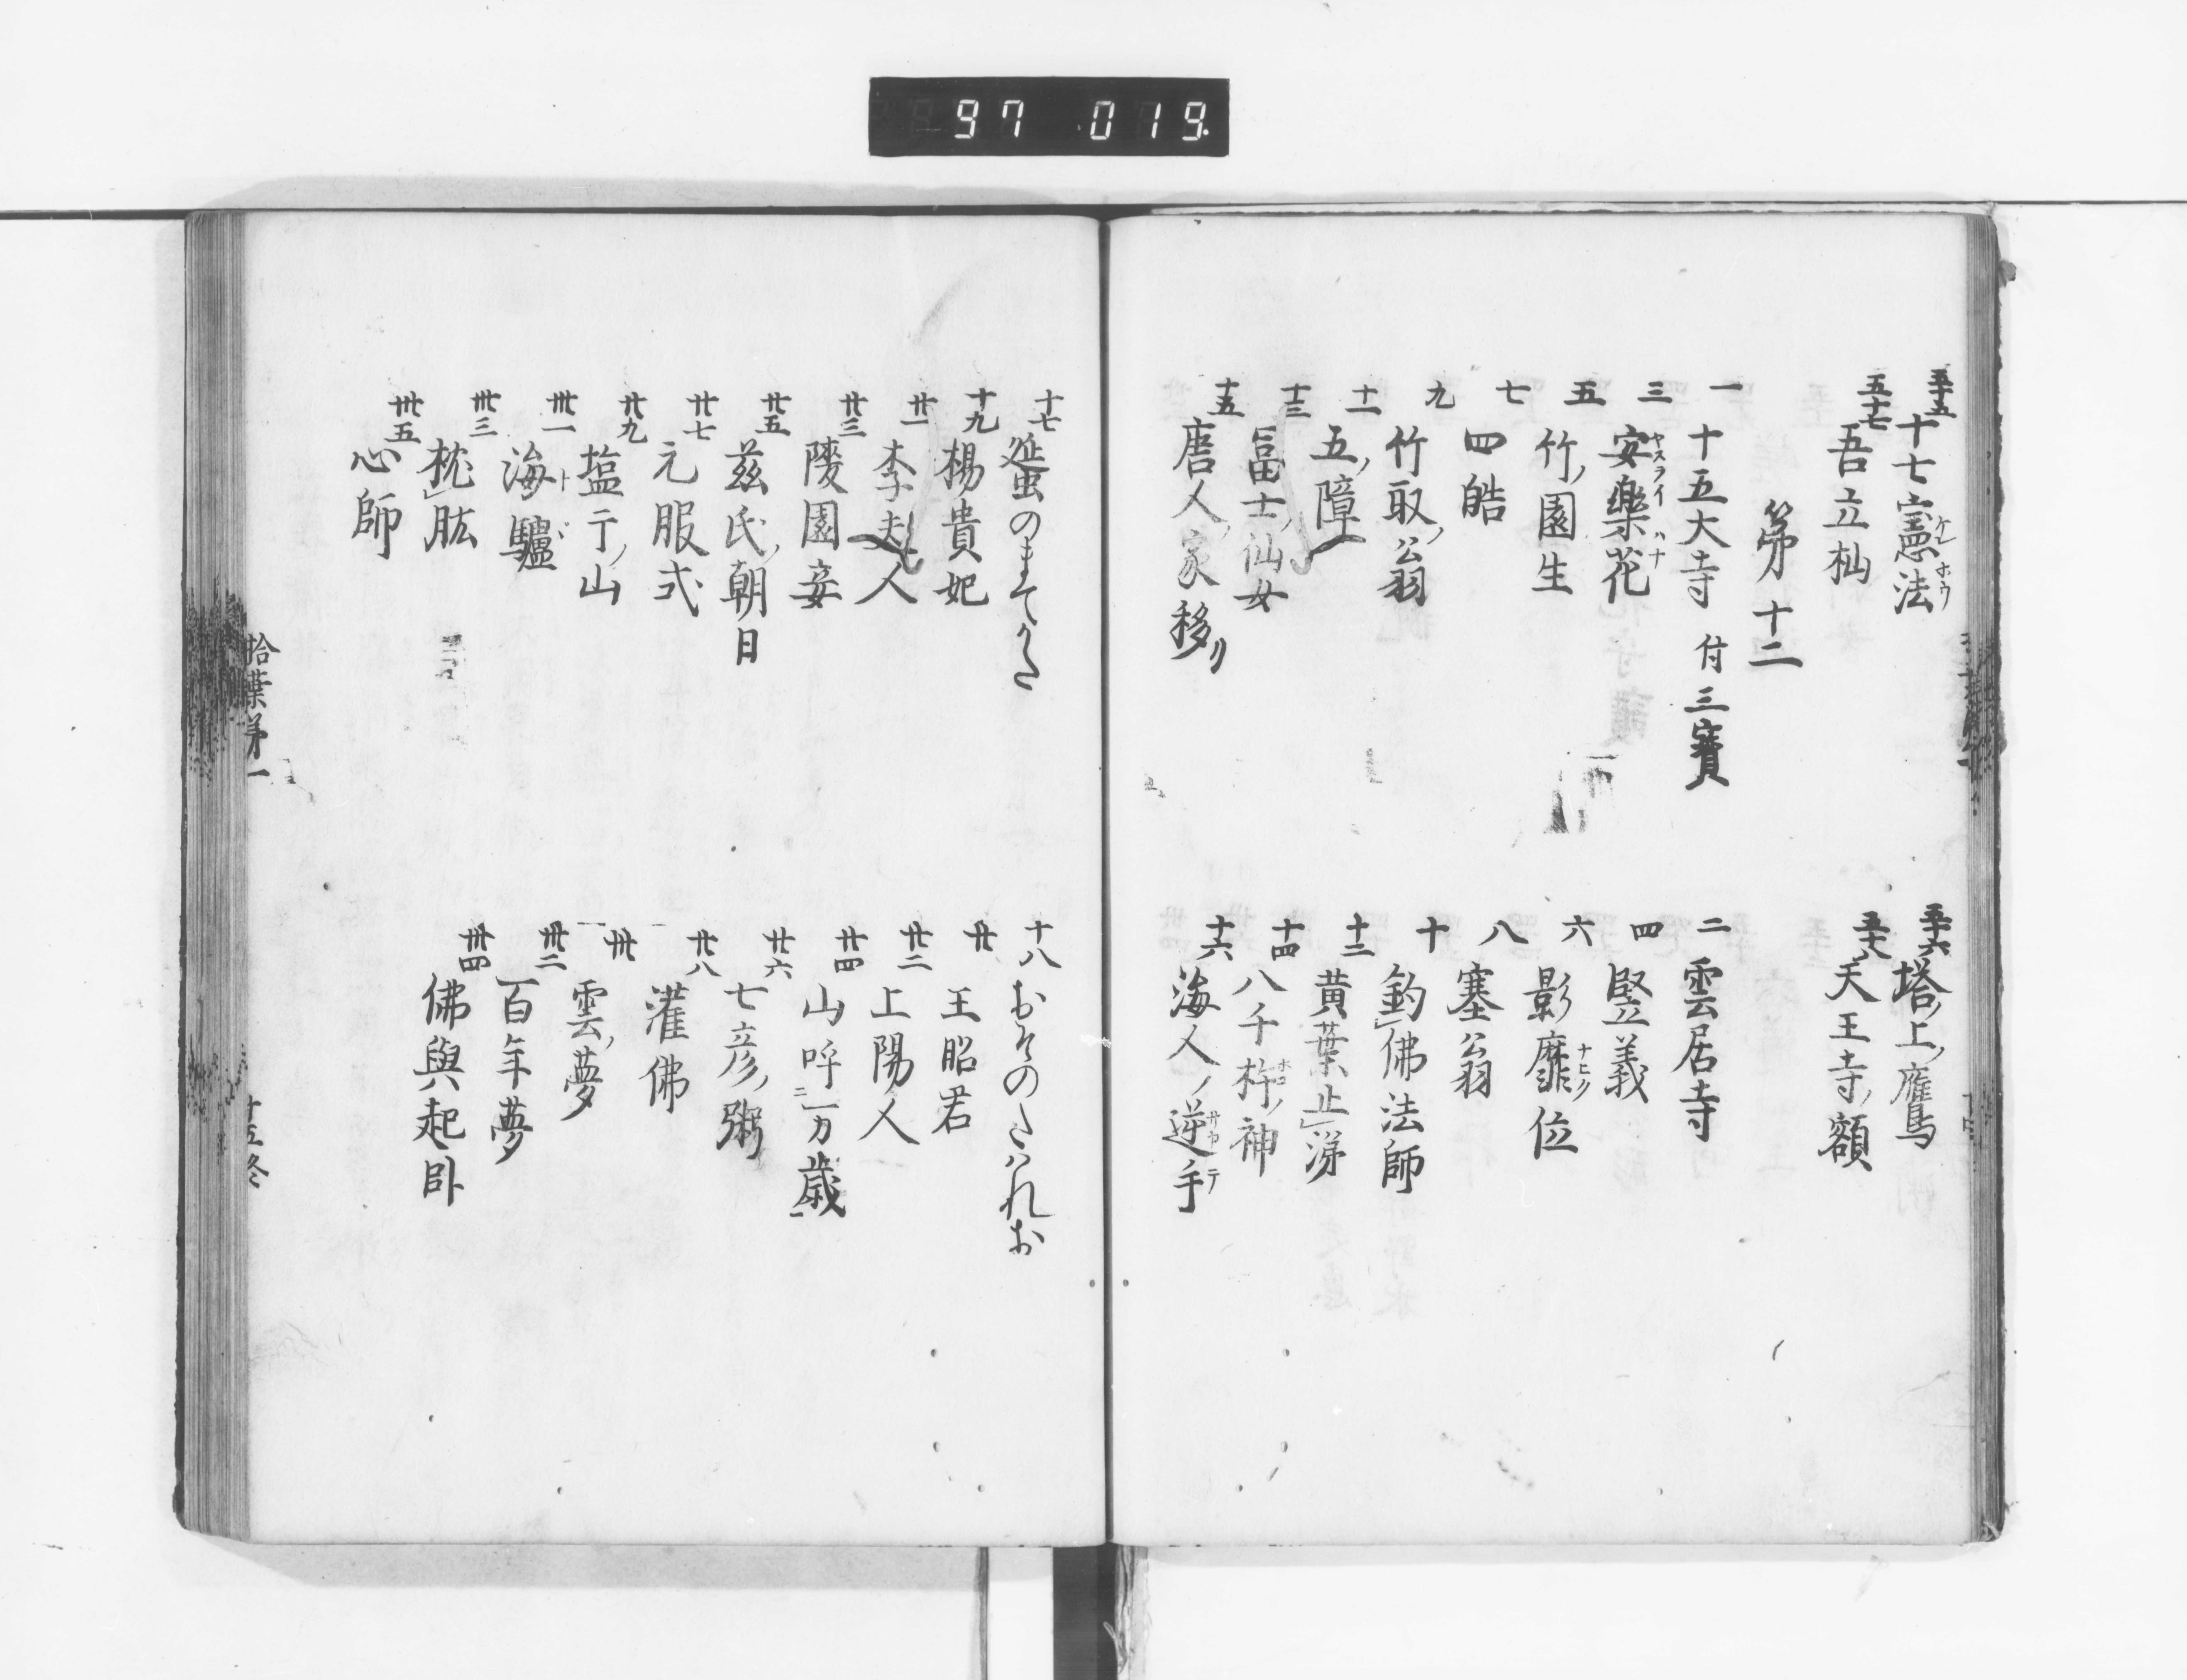 97 019.
五十五 十七憲法 ケンホウ
五十六 塔ノ上ノ鷹
五十七 吾立杣
五十八 天王寺ノ額
第十二
一 十五大寺 付三寶
二 雲居寺
三 安樂花 ヤスライハナ
四 竪義
五 竹ノ園生
六 影靡位 ナヒク
七 四皓
八 塞翁
九 竹取ノ翁
十 釣佛法師
十一 五ノ障
十二 黄葉止涕
十三 冨士ノ仙女
十四 八千桙ノ神
十五 唐人ノ家移リ
十六 海人ノ逆手
十七 蜑のまてかた
十八 おそのたはれお
十九 楊貴妃
廿 王昭君
廿一 李夫人
廿二 上陽人
廿三 陵園妾
廿四 山呼万歳
廿五 茲氏ノ朝日
廿六 七彦ノ粥
廿七 元服式
廿八 灌佛
廿九 塩丁ノ山
卅 雲ノ夢
卅一 海驢 トド
卅二 百年夢
卅三 枕肱
卅四 佛與起臥
卅五 心師
拾葉第一
十五終